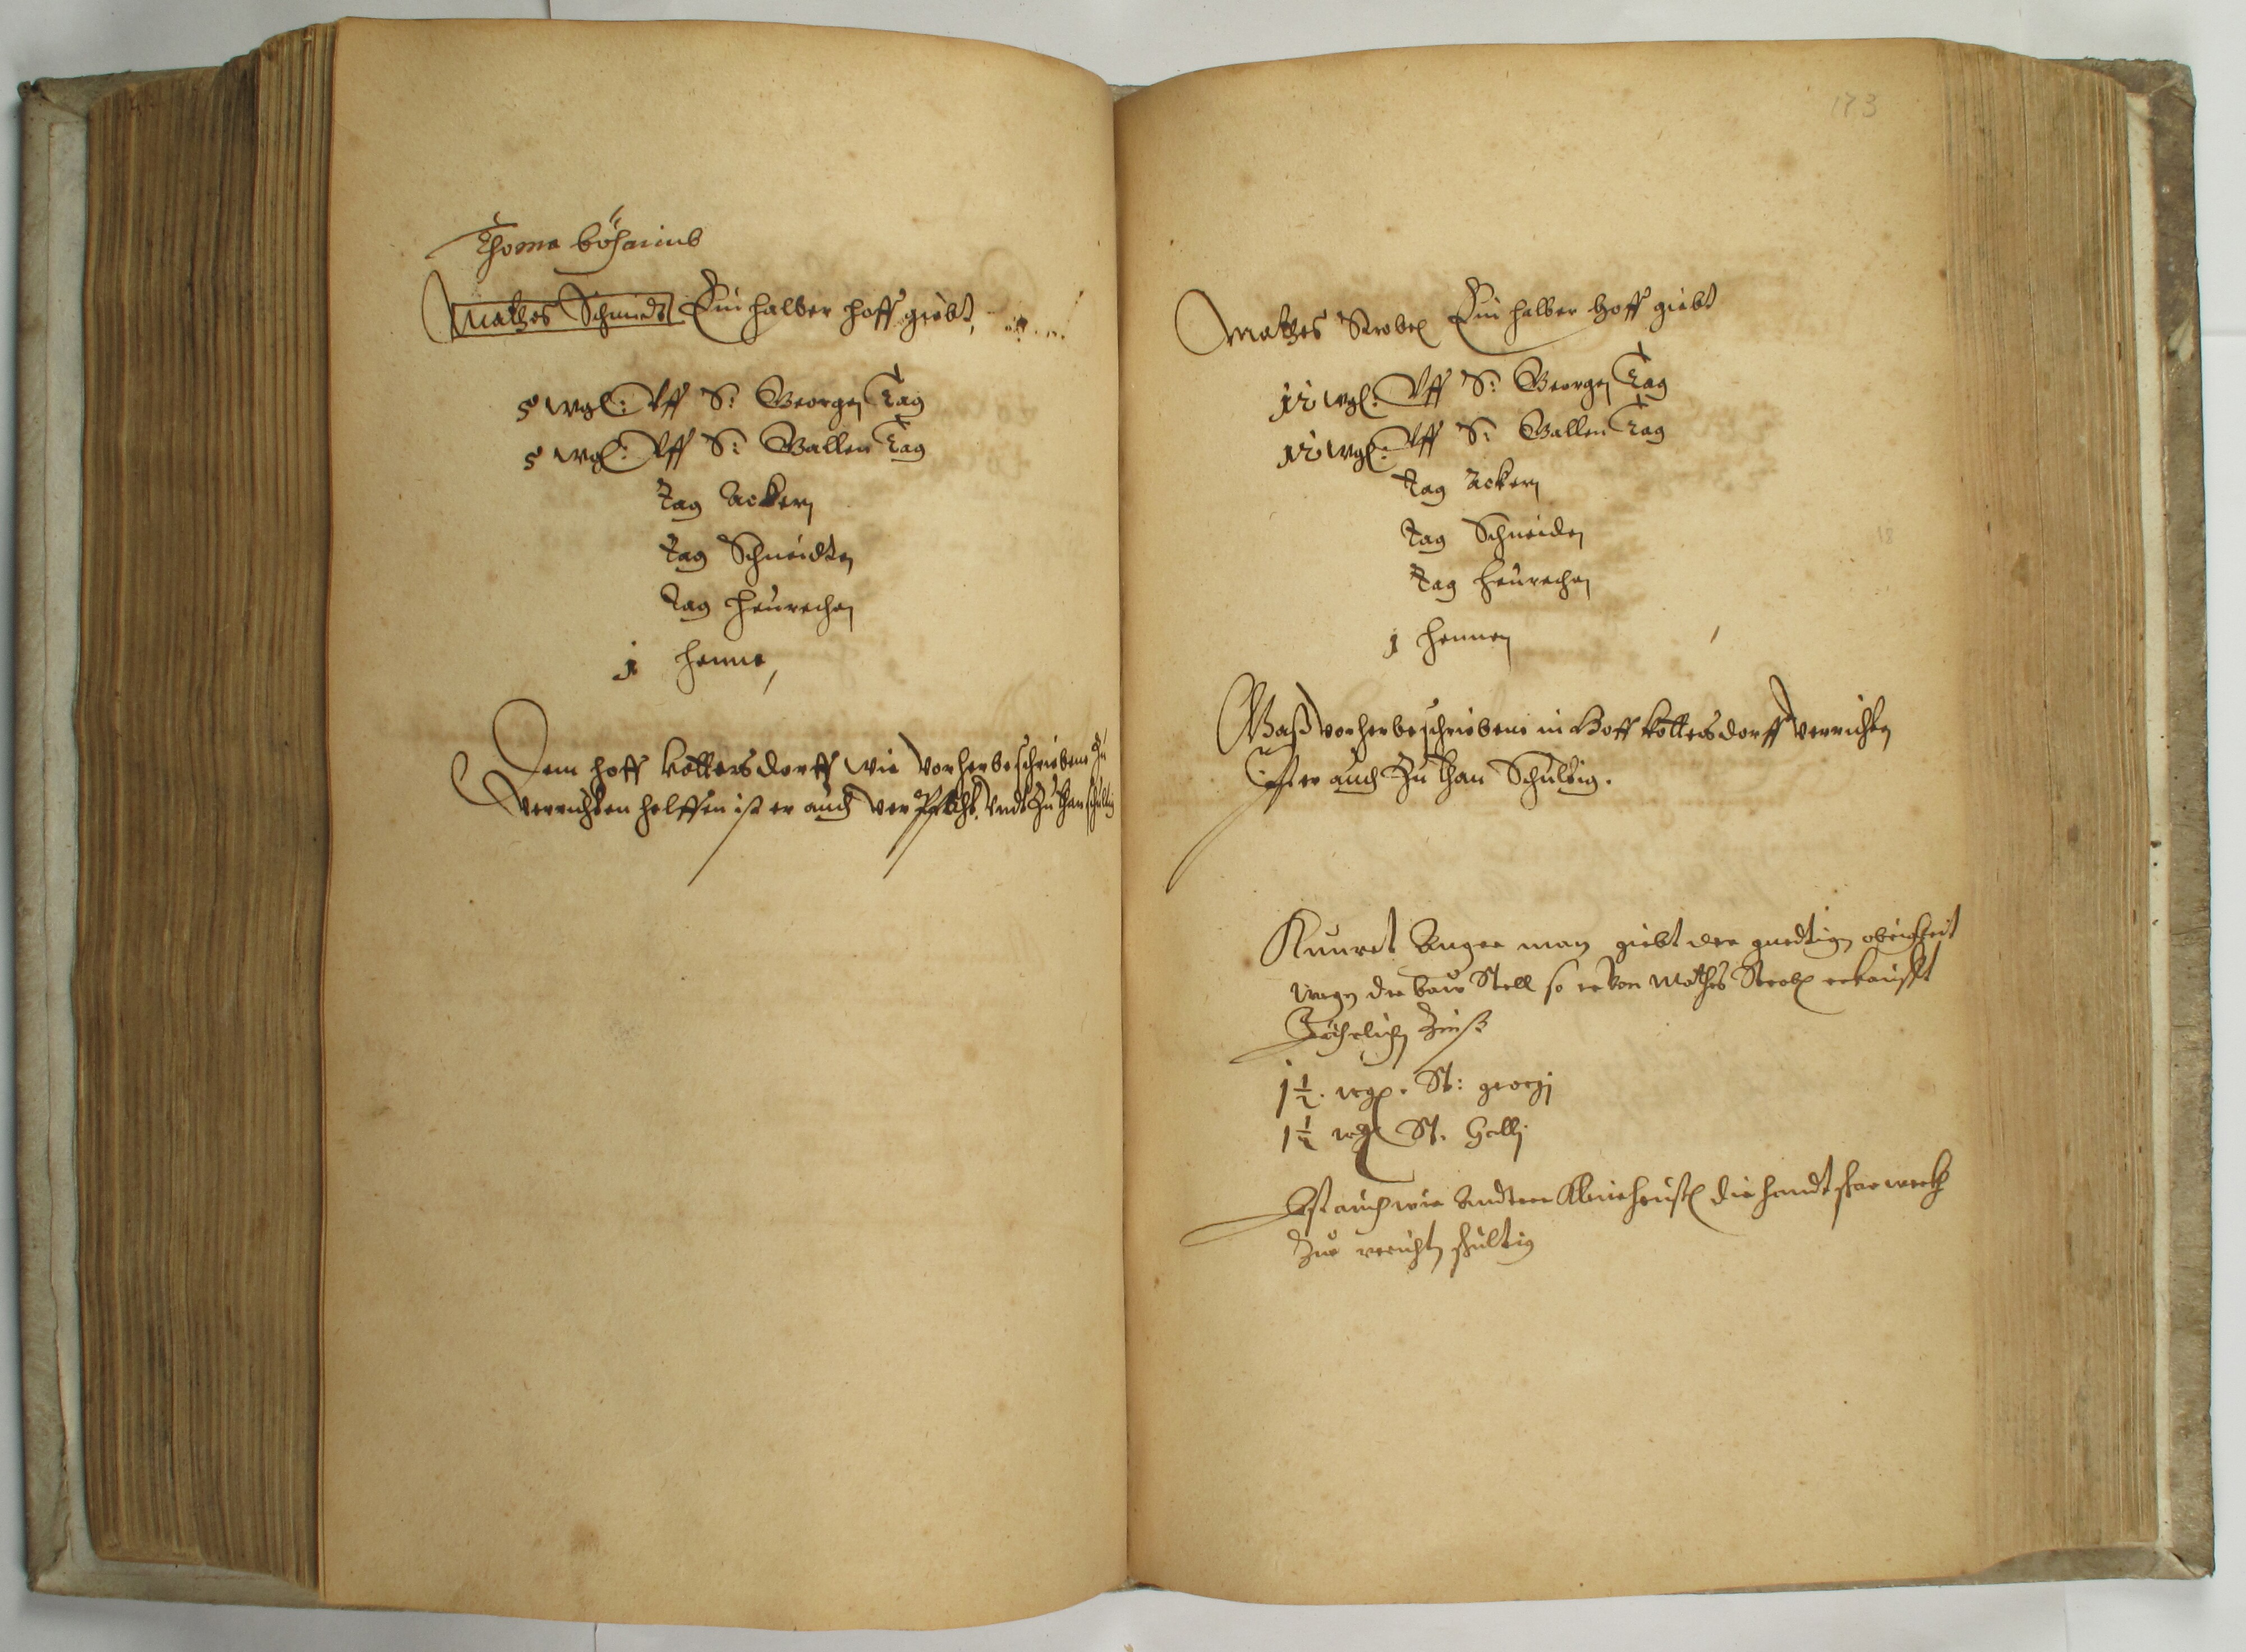 Thoma Böhaimb
Mathes Schmidt Ein halber hoff giebt,
5 wgl: Uff S: Georgen Tag
5 wgl: Uff S: Gallen Tag
Tag Ackern
Tag Schneidten
Tag heurechen
1 henne,
Dem hoff Kottersdorff wie vorherbeschriebene Zu
verrichten helffen ist er auch ver Pflicht. Undt Zu than schultig
173
Mathes Strobel Ein halber Hoff giebt
12 wgl: Uff S: Georgen Tag
12 wgl: Uff S: Gallen Tag
Tag Ackern
Tag Schneiden
18
Tag heurechen
1 hennen
Waß vorherbeschriebene in Hoff Kottersdorff verrichten
Ist er auch Zu than Schultig.
Kunret Anger man giebt der gnedtigen obrigkeit
wegen der bau Stell so er von Mathes Strobel erkaufft
Jährlichen Zinß
1 1/2. wgl. St: georgj
1 1/2 wgl St. Gallj
Ist auch wie Andtere Kleinheusl die handt scharwerkh
Zue verricht schultig